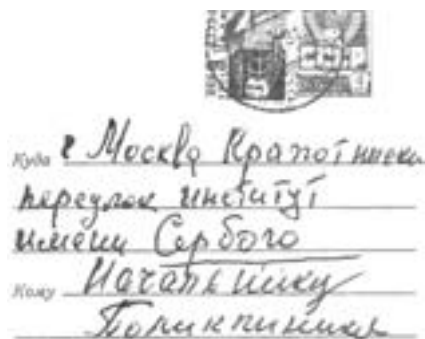 Куда г Москва Крапотниски
переулок институт
имени Сербского
Кому Начальнику
Поликлиники